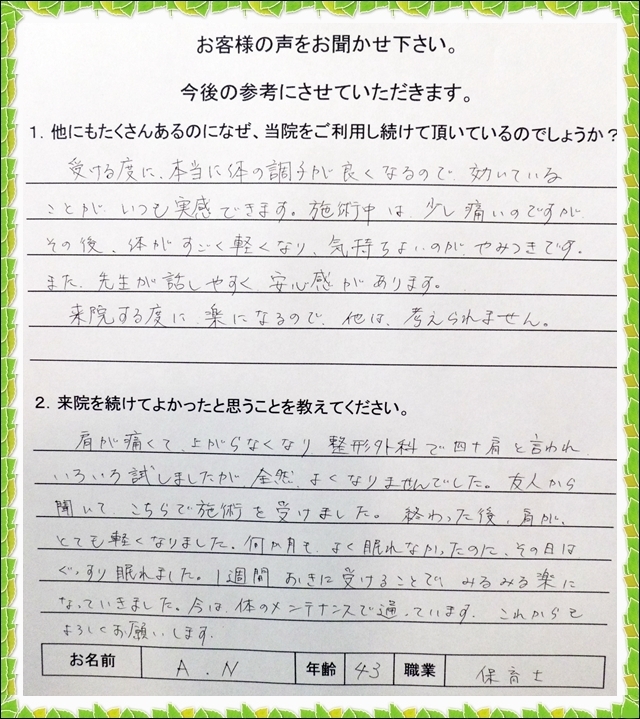 お客様の声をお聞かせ下さい。
今後の参考にさせていただきます。
1．他にもたくさんあるのになぜ、当院をご利用し続けて頂いているのでしょうか？
受ける度に、本当に体の調子が良くなるので、効いている
ことが、いつも実感できます。施術中は、少し痛いのですが
その後、体がすごく軽くなり、気持ちよいのが、やみつきです。
また、先生が話しやすく、安心感があります。
来院する度に、楽になるので、他は、考えられません。
2．来院を続けてよかったと思うことを教えてください。
肩が痛くて、上がらなくなり 整形外科で四十肩と言われ
いろいろ試しましたが、全然、よくなりませんでした。友人から
聞いて、こちらで施術を受けました。終わった後、肩が、
とても軽くなりました。何か月も、よく眠れなかったのに、その日は
ぐっすり眠れました。1週間おきに受けることで、みるみる楽に
なっていきました。今は、体のメンテナンスで通っています。これからも
よろしくお願いします。
お名前 A．N 年齢 43 職業 保育士